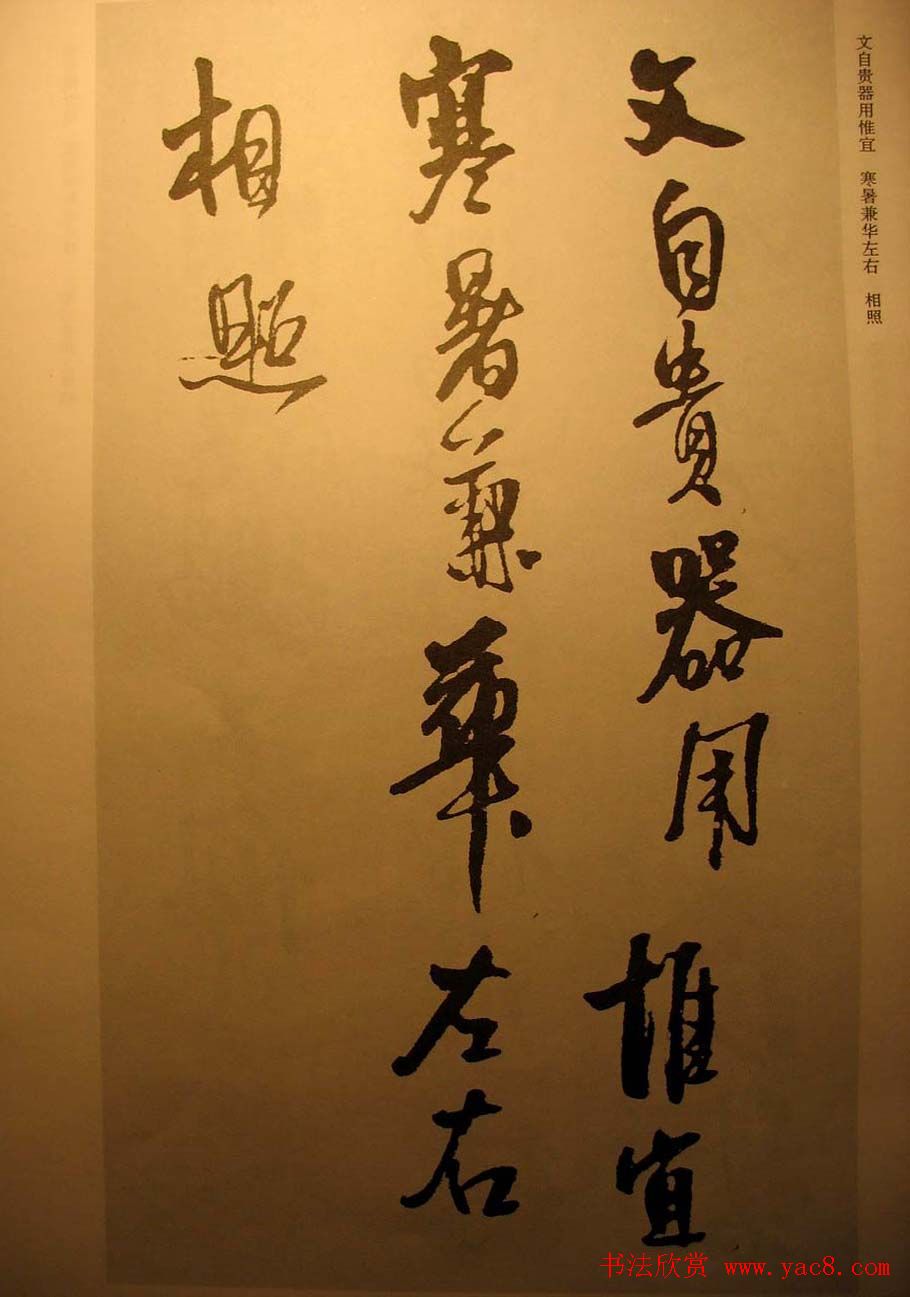 文自贵器用惟宜　寒暑兼华左右　相照
文自貴器用惟宜
寒暑兼華左右
相照
书法欣赏 www.yac8.com